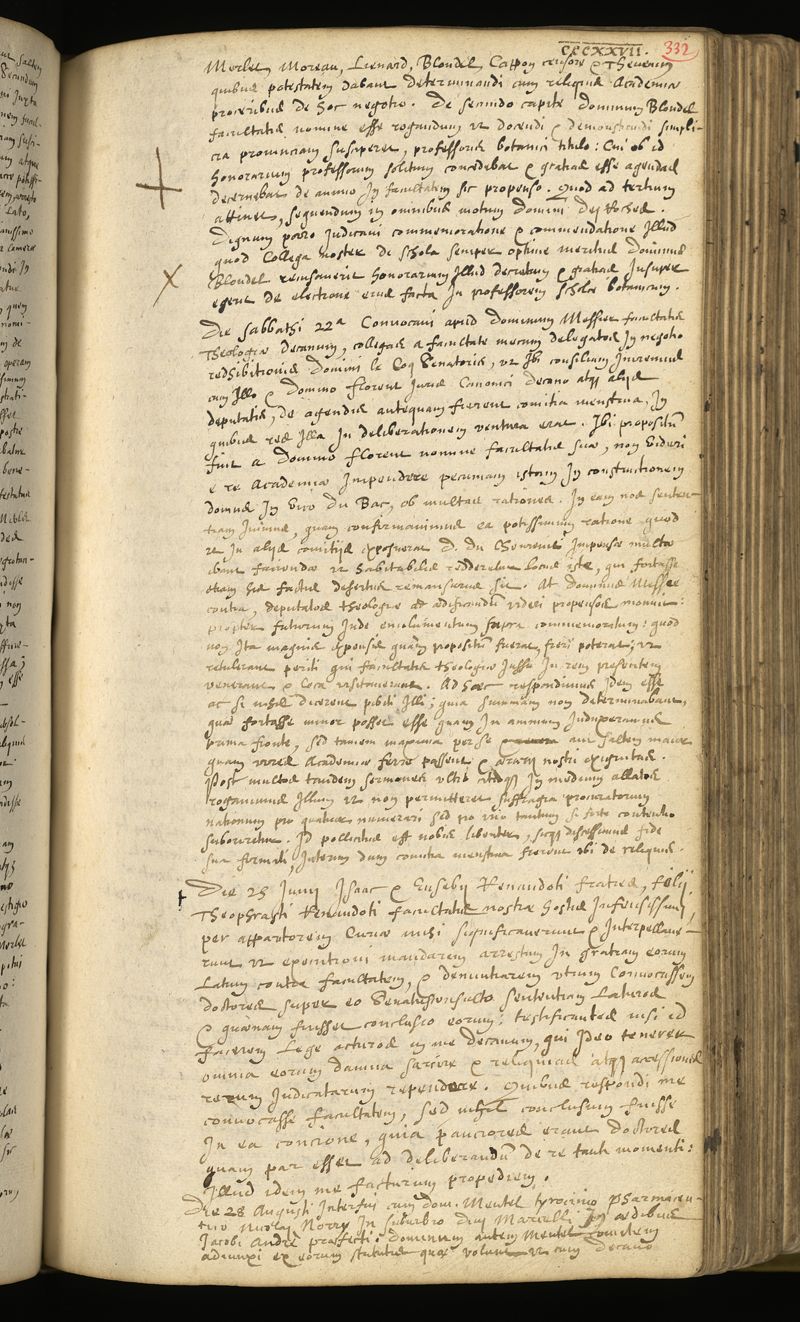 CCCXXVII. 332
Merlet, Moreau, Lienard, Blondel, Cappon censore & Thevenin
quibus potestatem dabant determinandi cum reliquis Academiæ
proceribus de hoc negotio. De secundo capite dominum Blondel
facultatis nomine esse rogandum ut docendi & demonstrandi simpli-
cia provinciam susciperet, professoris botanici titulo: Cui ob id
honorarium professorum solitum concedebat & gratias esse agendas
decernebat de animo In facultatem sic propenso. Quod ad tertium
attinet, sequendum in omnibus motum domini des Roches.
Dignum porro Judicavi commemoratione & commendatione Illud
quod Collega noster de schola semper optime meritus dominus
Blondel renuerit honorarium Illud decretum & gratias Insuper
egerit de electione eius facta In professorem scholæ botanicum.
Die Sabbathi 22ª Convocavi apud dominum Messier facultatis
Theologiæ decanum, collegas a facultate mecum delegatos In negotio
redhibitionis domini le Coq Senatoris, ut Ibi consilium Iniremus
cum Illo & domino florent Iuris Canonici decano atq; alijs
deputatis, de agendis antequam fierent comitia menstrua, In
quibus res Illa In deliberationem ventura erat. Ibi propositum
fuit a domino florent nomine facultatis suæ, non videri
e re Academiæ Impendere pecuniam istam In constructionem
domus In vico du Bac, ob multas rationes. In eam nos senten-
tiam Ivimus, quam confirmavimus ea potissimum ratione quod
ut In alijs comitijs exposuerat D. du Chevreul Impensæ multæ
erant faciendæ ut habitabilis redderetur locus iste, qui fortasse
etiam his factis desertus remansurus sit. At dominus Messier
contra, deputatos theologiæ ad ædificandum videri propensos monuit:
propter futurum Inde emolumentum supra commemoratum: quod
non Ita magnis expensis quam propositum fuerat, fieri poterat, ut
retulerant periti qui facultatis theologiæ Iussu In rem presentem
venerant & loca visitaverant. Ad hæc respondimus Idem esse
ac si nihil dicerent periti Illi; quia summam non determinabant,
quæ fortasse minor posset esse quam In animum Induxeramus
prima fronte, sed tamen maxima per se & aut saltem maior
quam vires Academiæ ferre possent & ærarij nostri exiguitas.
Post multos tandem sermones ultro citroq; In medium allatos
rogavimus Illum ut non permitteret suffragia procuratorum
nationum pro quatuor numerari sed pro uno tantum si forte contentio
suboriretur. Id pollicitus est nobis libenter, sicq; discessimus fide
sua firmati, Interim dum comitia menstrua fierent ubi de reliquis.
Die 25 Junij Isaac & Eusebius Renaudoti fratres, filij
Theophrasti Renaudoti facultatis nostræ hostis Infensissimi,
per apparitorem Curiæ mihi significaverunt & Interpellave-
runt ut executioni mandarem arrestum In gratiam eorum
Latum contra facultatem, & denuntiarem utrum Convocassem
doctores super eo Senatusconsulto sententiam Laturos
& quænam fuisset conclusio eorum; testificantes nisi id
facerem Lege acturos in me decanum, qui Ideo tenerer
omnia eorum damna sarcire & reliquias atq; accessiones
rerum Iudicatarum rependere. Quibus respondi me
convocasse facultatem, sed nihil conclusum fuisse
In ea concione, quia pauciores erant doctores
quam par esset ad deliberandum de re tanti momenti:
Illud idem me facturum propediem.
Die 28 Augusti Interfui cum dom. Mentel tyrocinio pharmaceu-
tico Nicolaj Norry In suburbio divi Marcelli In ædibus
Jacobi André præfecti: dominum autem Mentel comitem
adiunxi ex eorum statutis quæ volunt ut cum decano